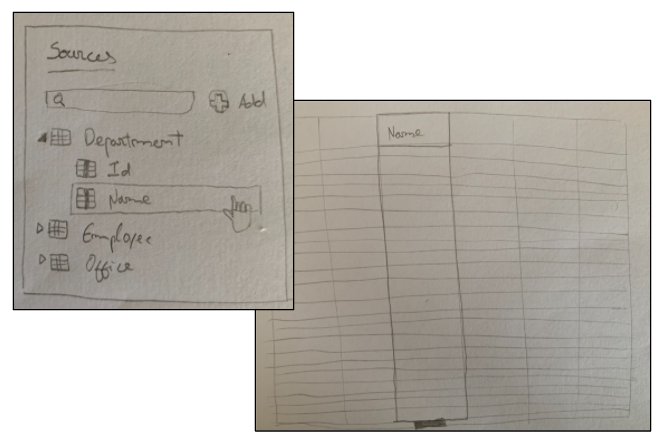 Sources
Add
Department
Id
Name
Employee
Office
Name